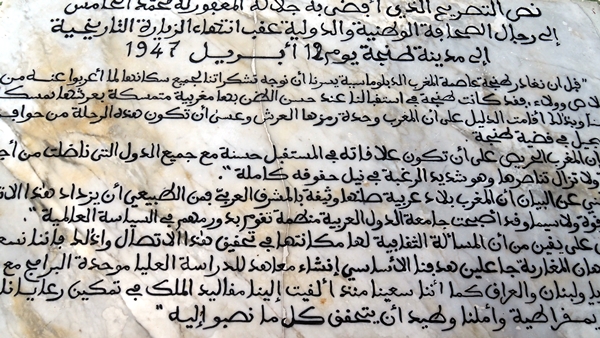 نص التصريح الذي أفضى به جلالة المغفور له محمد الخامس
إلى رجال الصحافة الوطنية والدولية عقب انتهاء الزيارة التاريخية
إلى مدينة طنجة يوم 12 أبريل 1947
"قبل أن نغادر طنجة عاصمة المغرب الدبلوماسية يسرنا أن نوجه تشكراتنا لجميع سكانها لما أعربوا عنه من
لاص وولاء، فقد كانت طنجة في استقبالنا عند حسن الظن بها مغربية متمسكة بعرشها تمسك
نا وبذلك أقامت الدليل على أن المغرب وحدة رمزها العرش وعسى أن تكون هذه الرحلة من حوافز
جيل في قضية طنجة
وان المغرب الحريص على أن تكون علاقاته في المستقبل حسنة مع جميع الدول التي ناضلت من أج
ولا تزال تناصرها وهو شديد الرغبة في نيل حقوقه كاملة".
ني عن البيان أن المغرب بلاد عربية صلتها وثيقة بالمشرق العربي فمن الطبيعي أن يزداد هذا الات
قوة ولاسيما وقد أصبحت جامعة الدول العربية منظمة تقوم بدور مهم في السياسة العالمية".
ى على يقين من أن المسألة الثقافية لها مكانتها في تحقيق هذا الاتصال ولذلك فإننا نسع
هان المغاربة جاعلين هدفنا الأساسي إنشاء معاهد للدراسة العليا موحدة البرامج مع
يا ولبنان والعراق كما أننا سعينا منذ ألقيت إلينا مقاليد الملك في تمكين رعايانا
يمقراطية وأملنا وطيد أن يتحقق كل ما نصبو إليه"